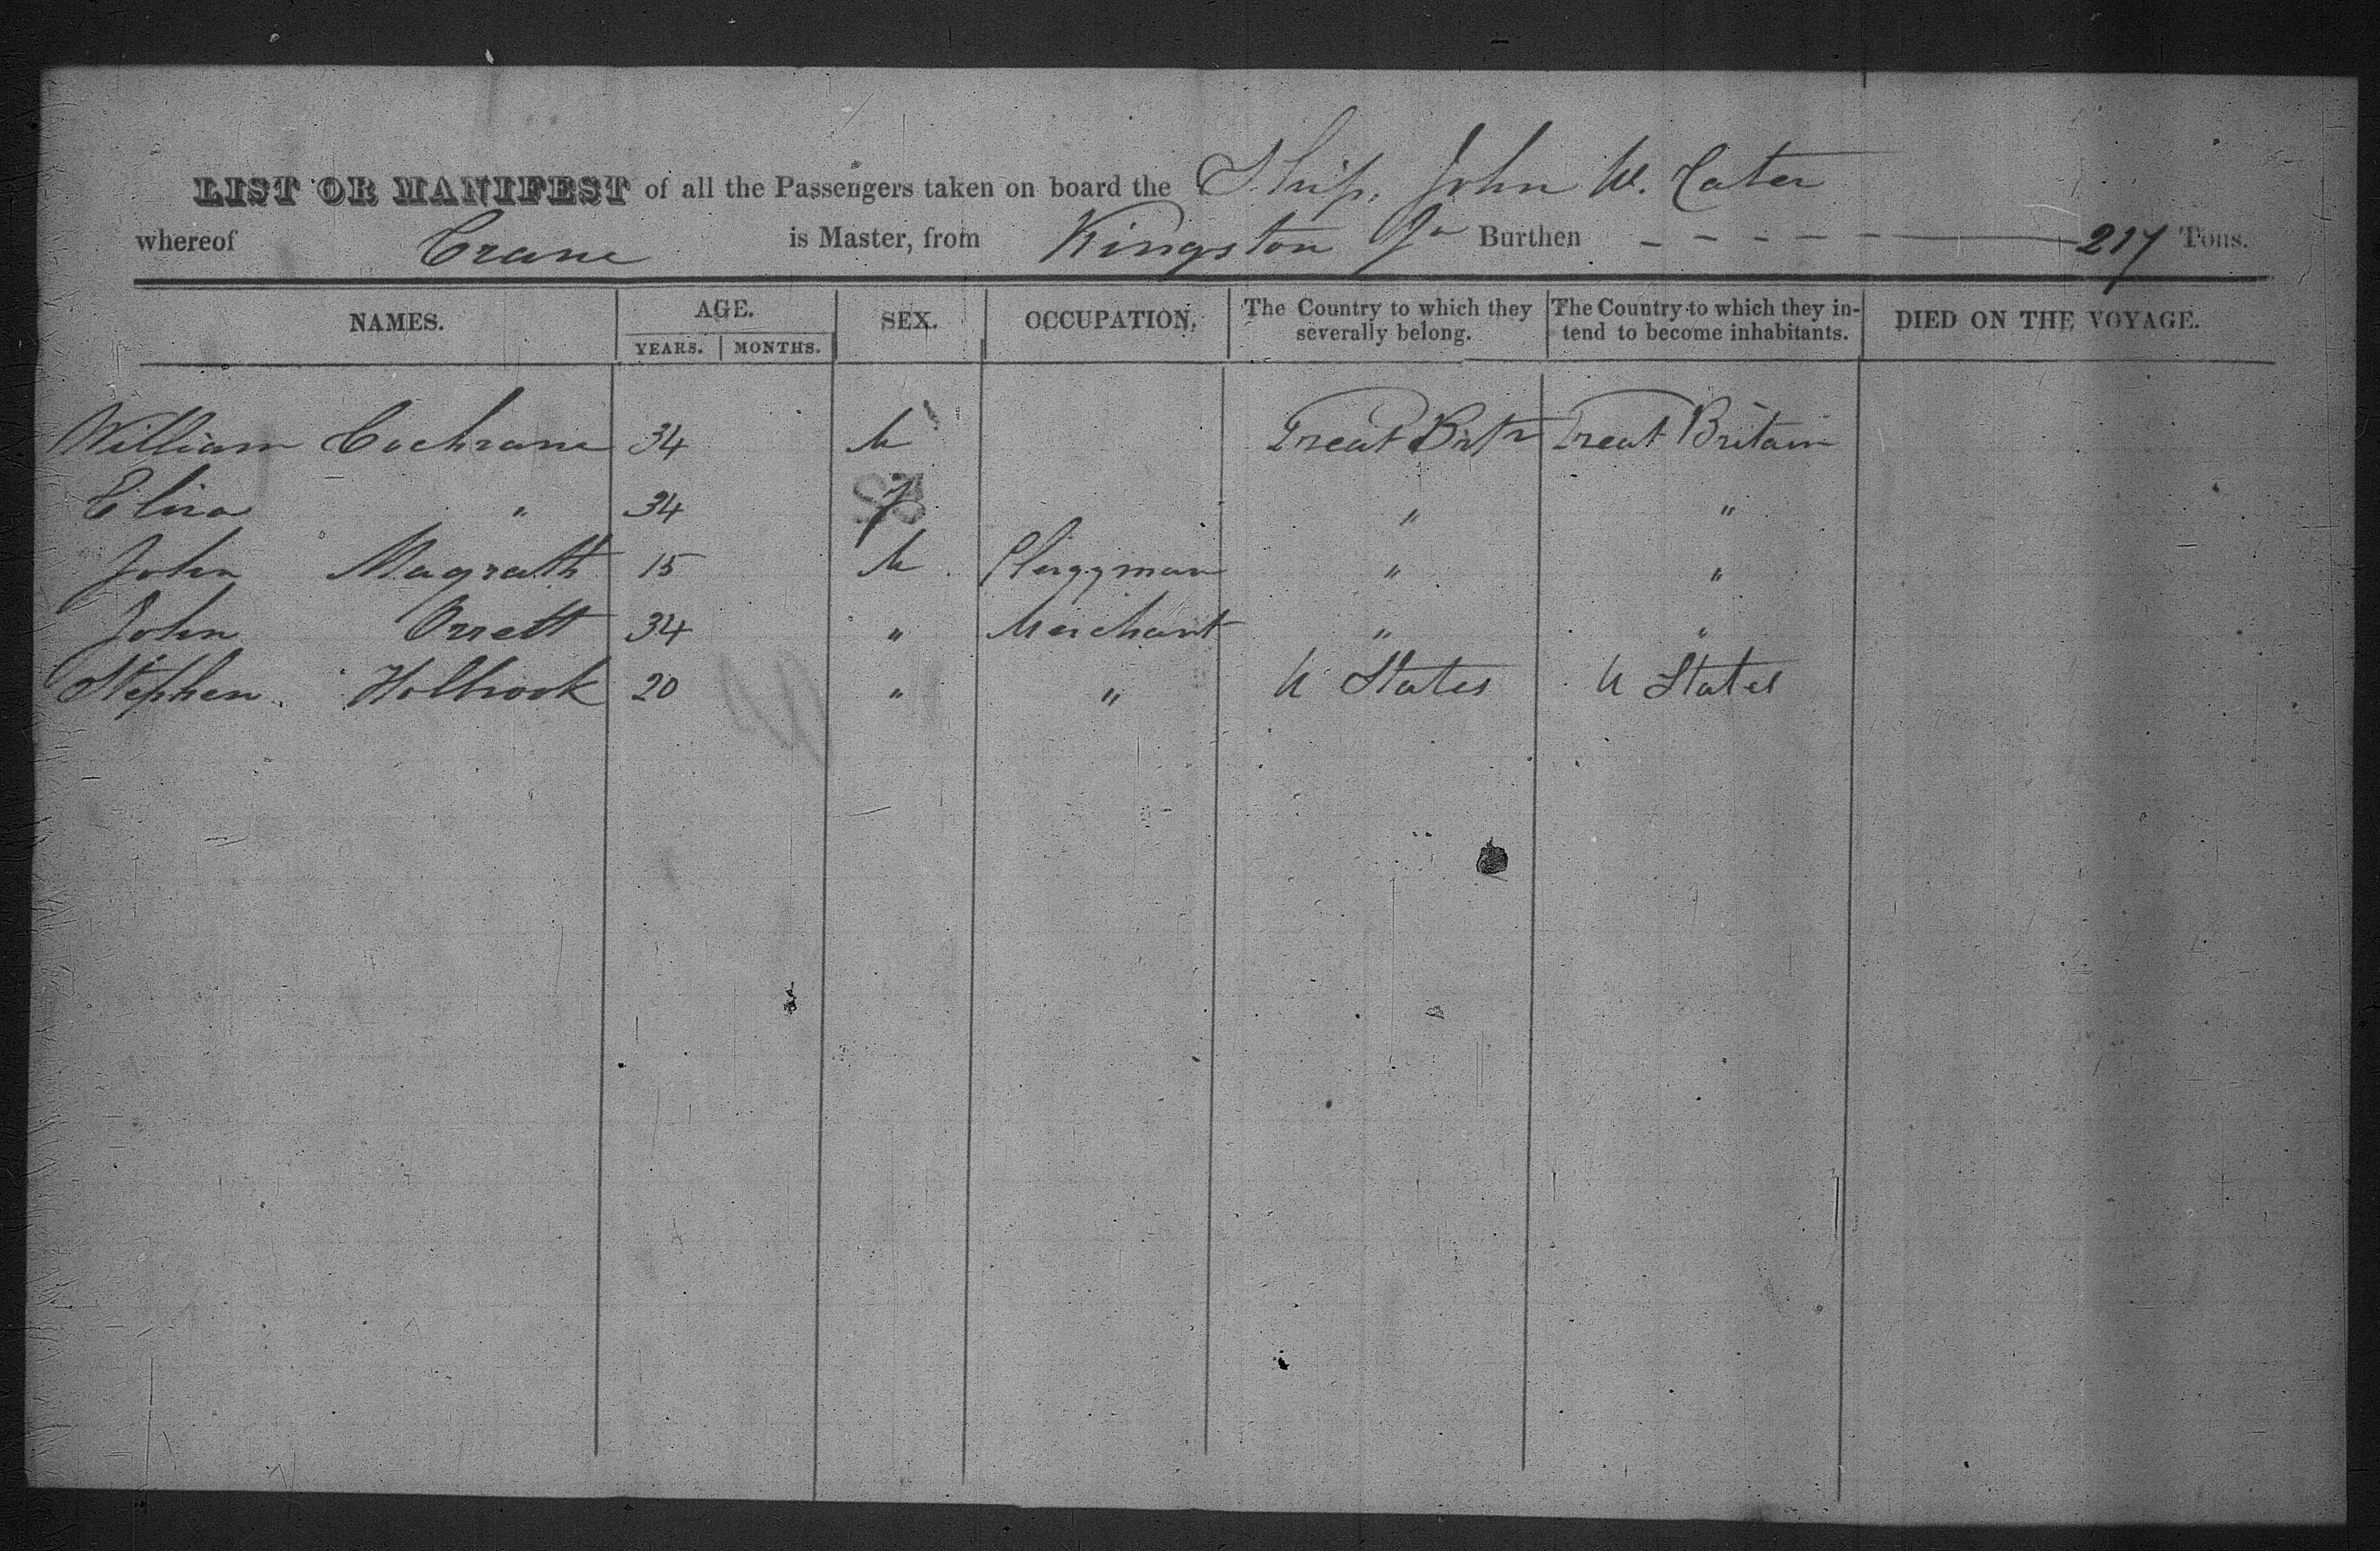 LIST OR MANIFEST of all the Passengers taken on board the Ship, John W. Cater
whereof Crane is Master, from Kingston Ja Burthen 217 Tons.
NAMES. AGE. YEARS. MONTHS. SEX. OCCUPATION. The Country to which they severally belong. The Country to which they intend to become inhabitants. DIED ON THE VOYAGE.
William Cochrane 34 M Great Britn Great Britain
Eliza " 34 F " "
John Magrath 15 M Clergyman " "
John Orrett 34 " Merchant " "
Stephen Holbrook 20 " " U States U States